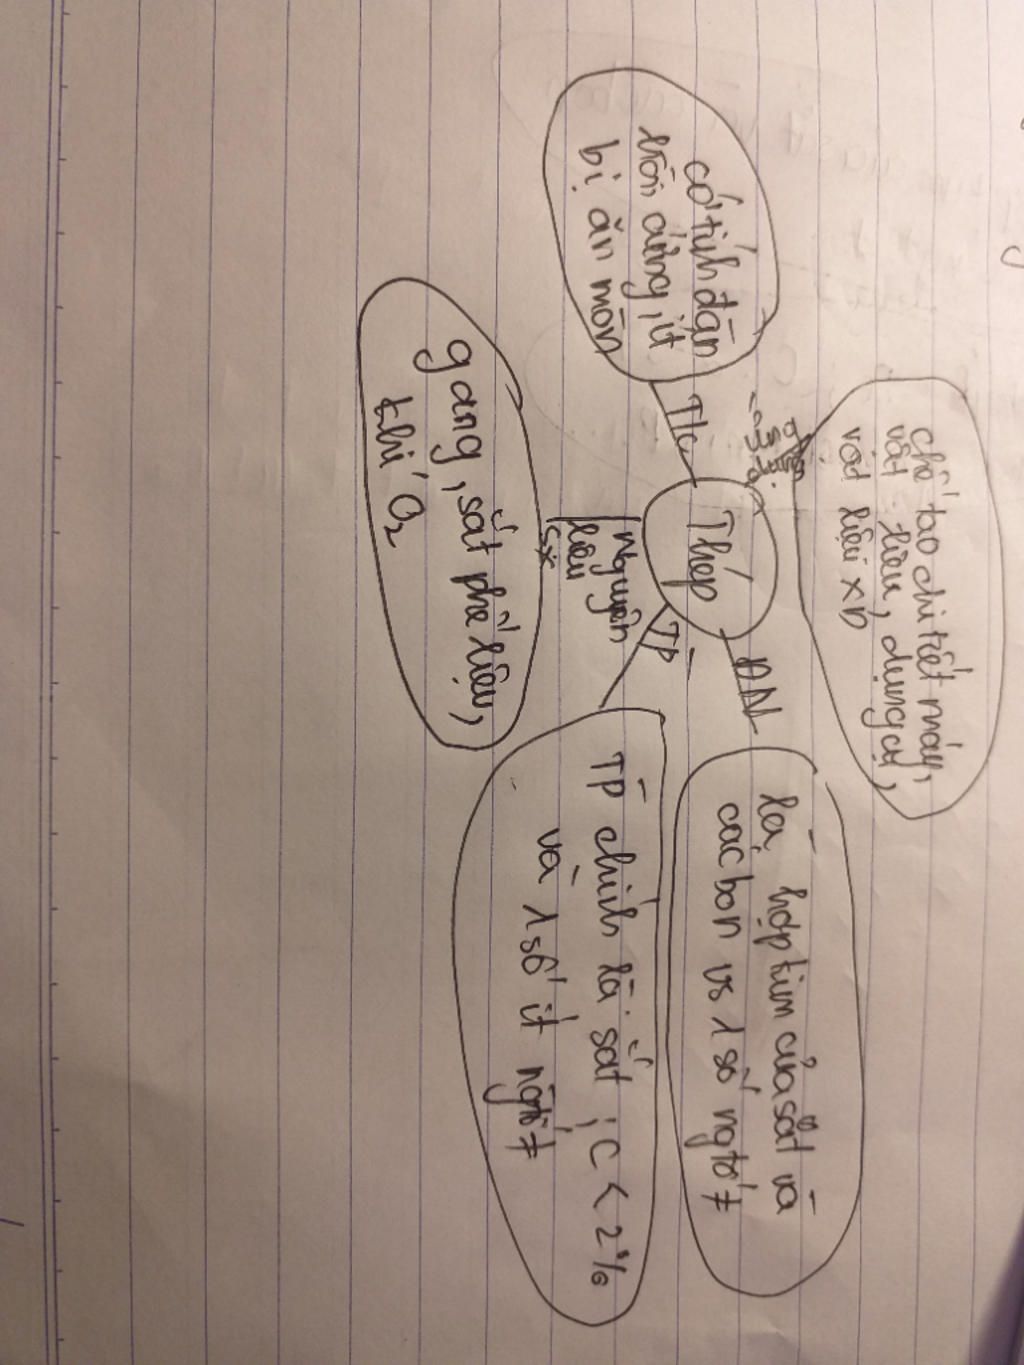 Thép
T/c
có tính đàn
hồi, cứng, ít
bị ăn mòn
chế tạo chi tiết máy,
vật liệu, dụng cụ,
vật liệu XD
ĐN
là hợp kim của sắt và
các bon vs 1 số ngtố ≠
TP
TP chính là sắt ; C < 2%
và 1 số ít ngtố ≠
Nguyên
liệu
sx
gang, sắt phế liệu,
khí O₂